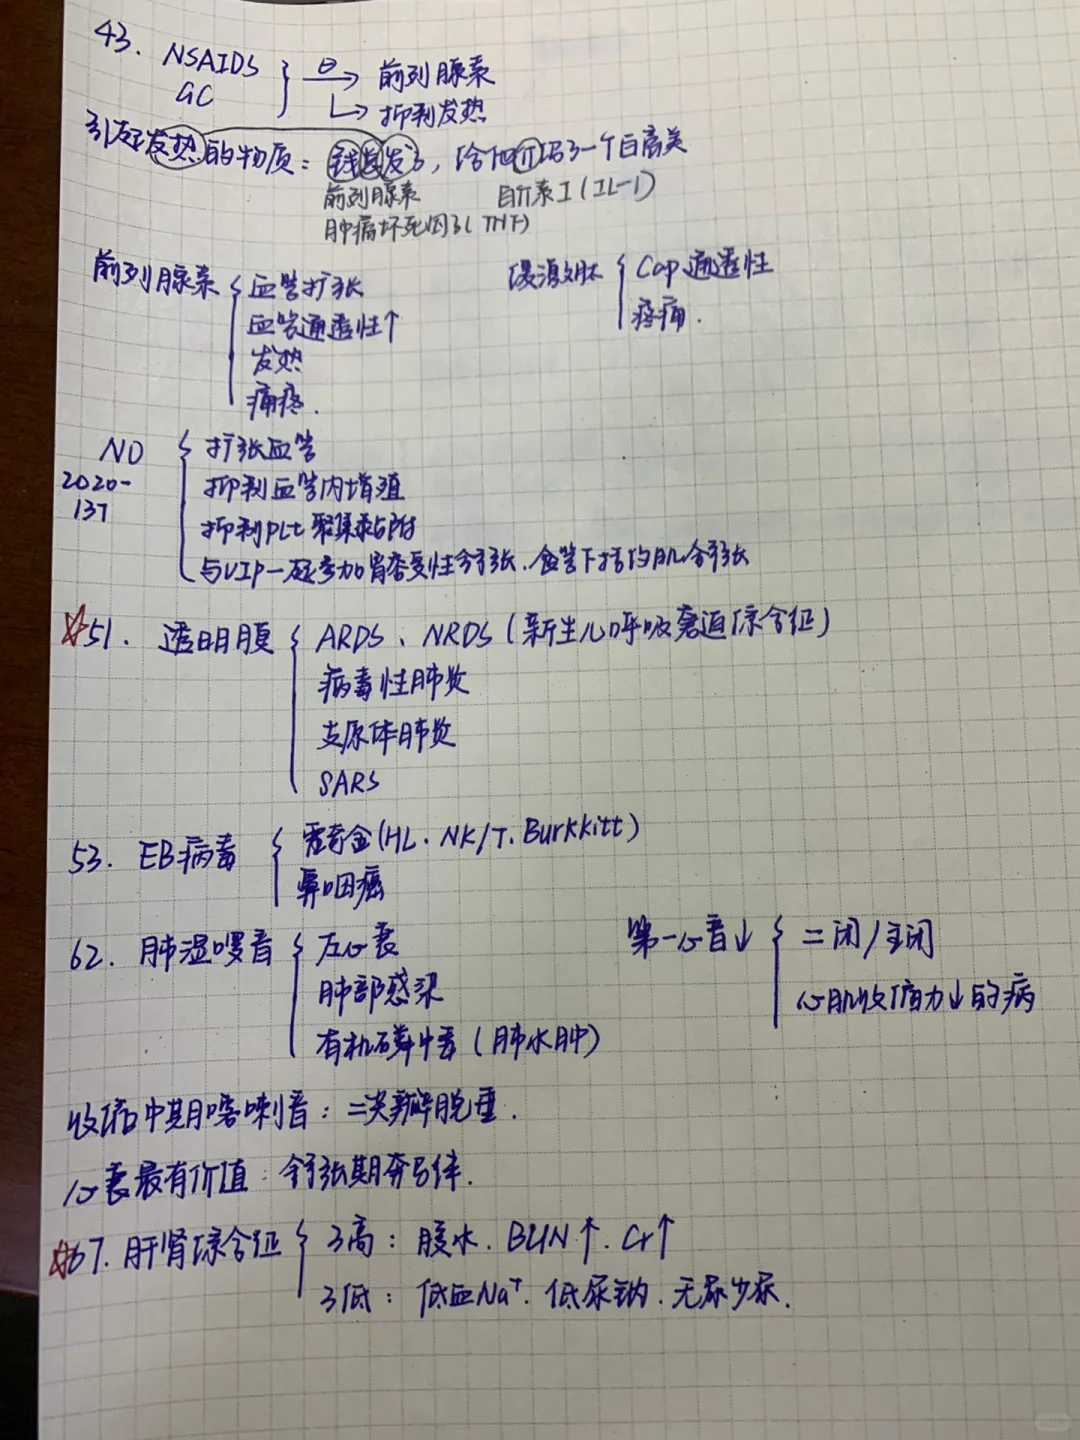 43. NSAIDS
GC
⊖→ 前列腺素
↳ 抑制发热
引起发热的物质: 钱总发了, 给他介绍了一个白富美
前列腺素 白介素I (IL-1)
肿瘤坏死因子(TNF)
前列腺素 { 血管扩张
血管通透性↑
发热
痛疼.
缓激肽 { Cap通透性
疼痛.
NO
2020-
137
扩张血管
抑制血管内增殖
抑制PLt聚集黏附
与VIP一起参加胃容受性舒张. 食管下括约肌舒张
☆51. 透明膜 { ARDS、NRDS (新生儿呼吸窘迫综合征)
病毒性肺炎
支原体肺炎
SARS
53. EB病毒 { (HL. NK/T. Burkkitt)
鼻咽癌
62. 肺湿啰音 { 左心衰
肺部感染
有机磷中毒 (肺水肿)
第一心音↓ { 二闭/主闭
心肌收缩力↓的病
收缩中期喀喇音: 二尖瓣脱垂.
心衰最有价值: 舒张期奔马律.
☆67. 肝肾综合征 { 3高: 腹水. BUN↑. Cr↑
3低: 低血Na⁺. 低尿钠. 无尿少尿.